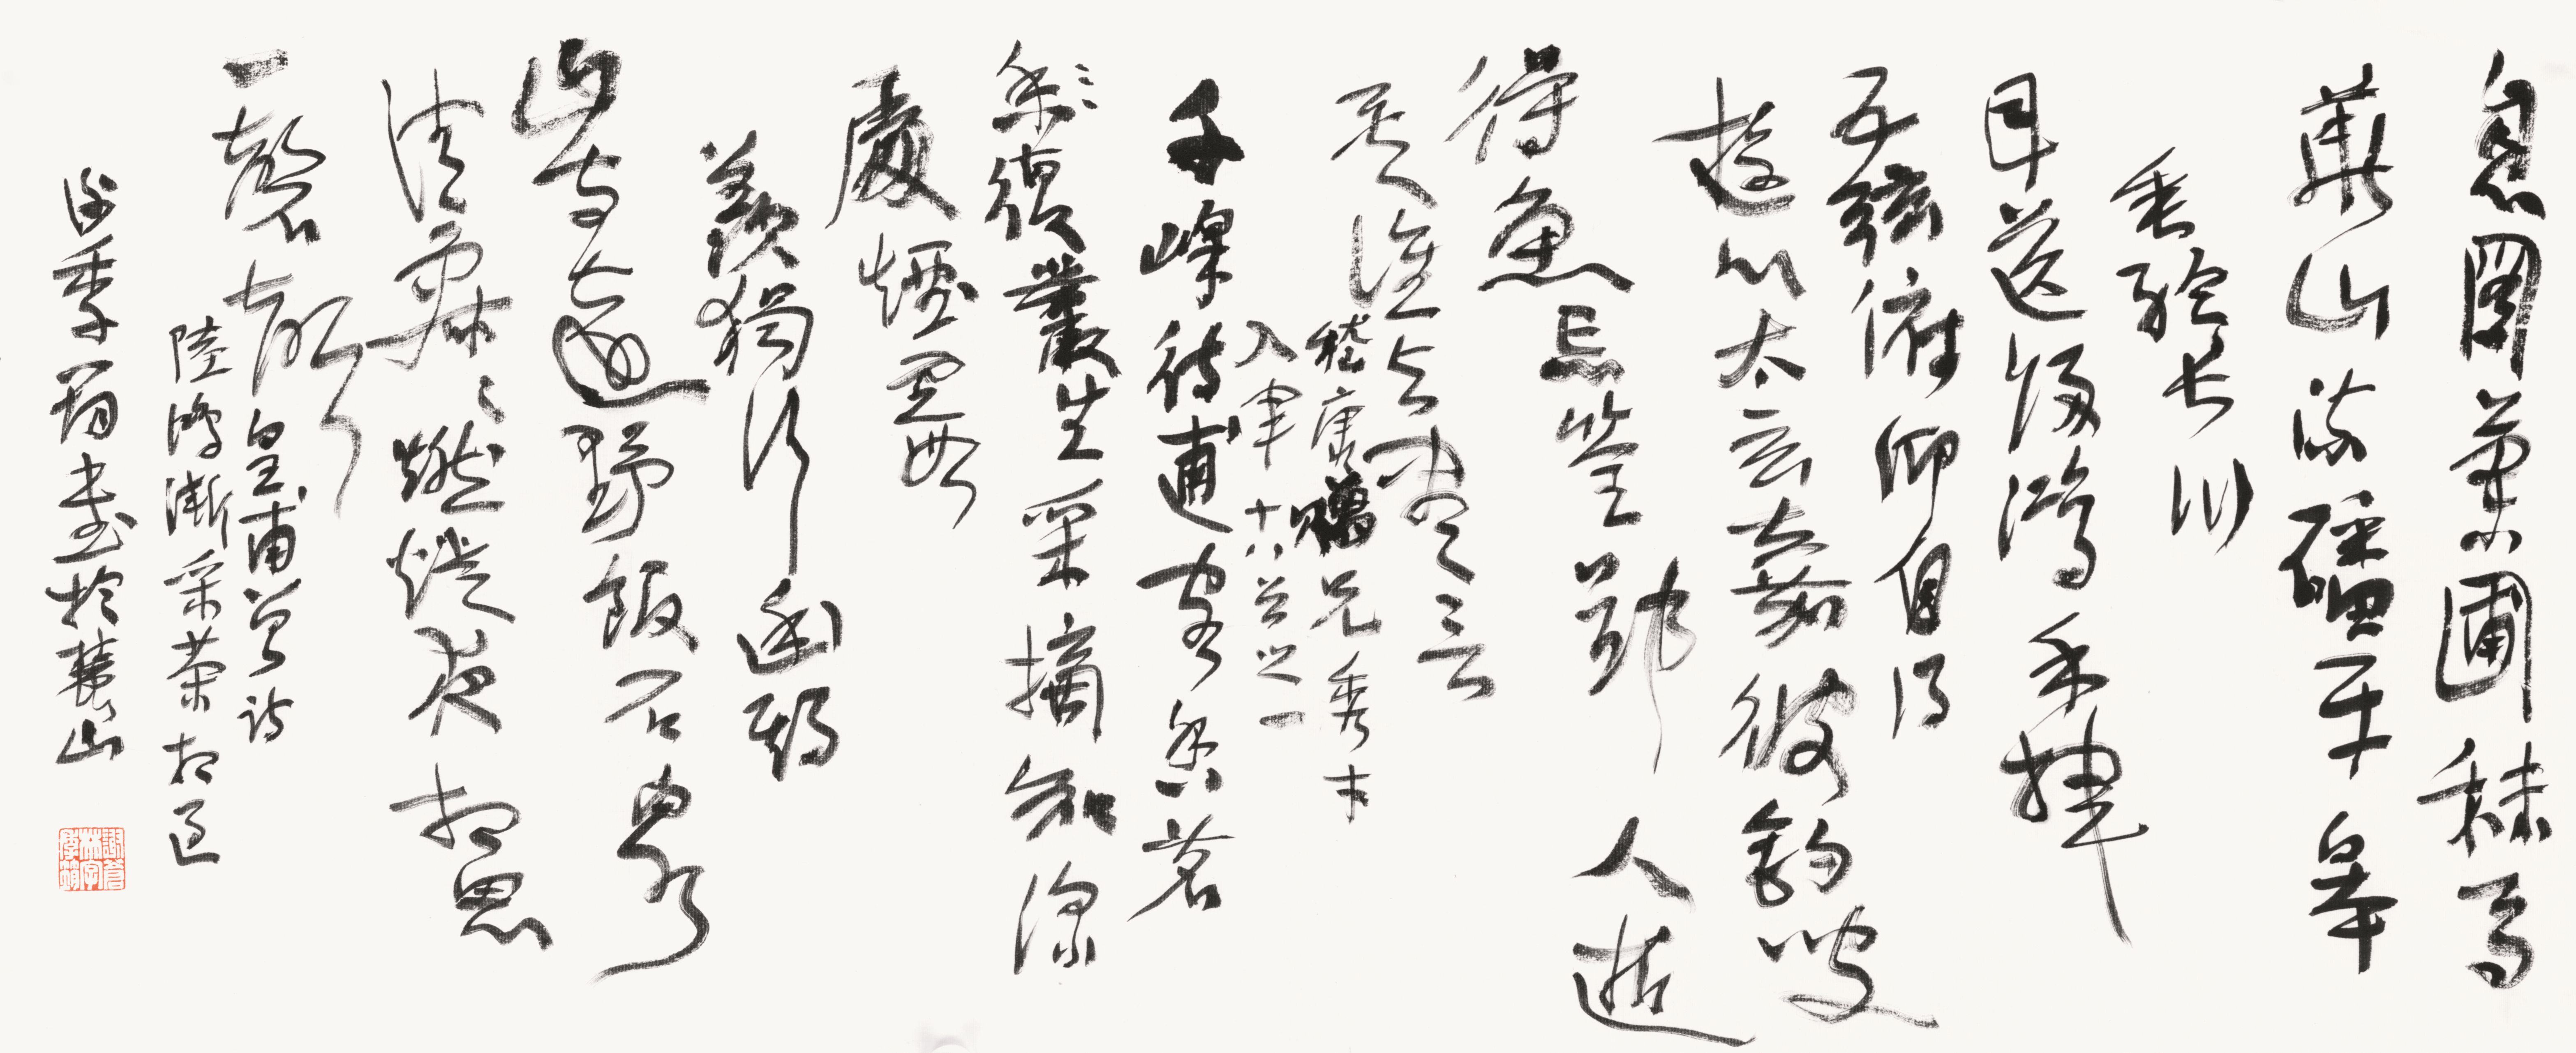 息蘭圃秣馬
華山流磻平皋
垂綸長川
目送歸鴻手揮
五弦俯仰自得
遊心太玄嘉彼釣叟
得魚忘筌郢人逝
矣誰與盡言
嵇康贈兄秀才
入軍十八首之一
千峰待逋客香茗
復叢生采摘知深
處煙霞
羨獨行幽期
山寺遠野飯石泉
清寂〻燃燈夜相思
一磬聲
皇甫曾詩
陸鴻漸采茶相遇
謝季筠書於麓山